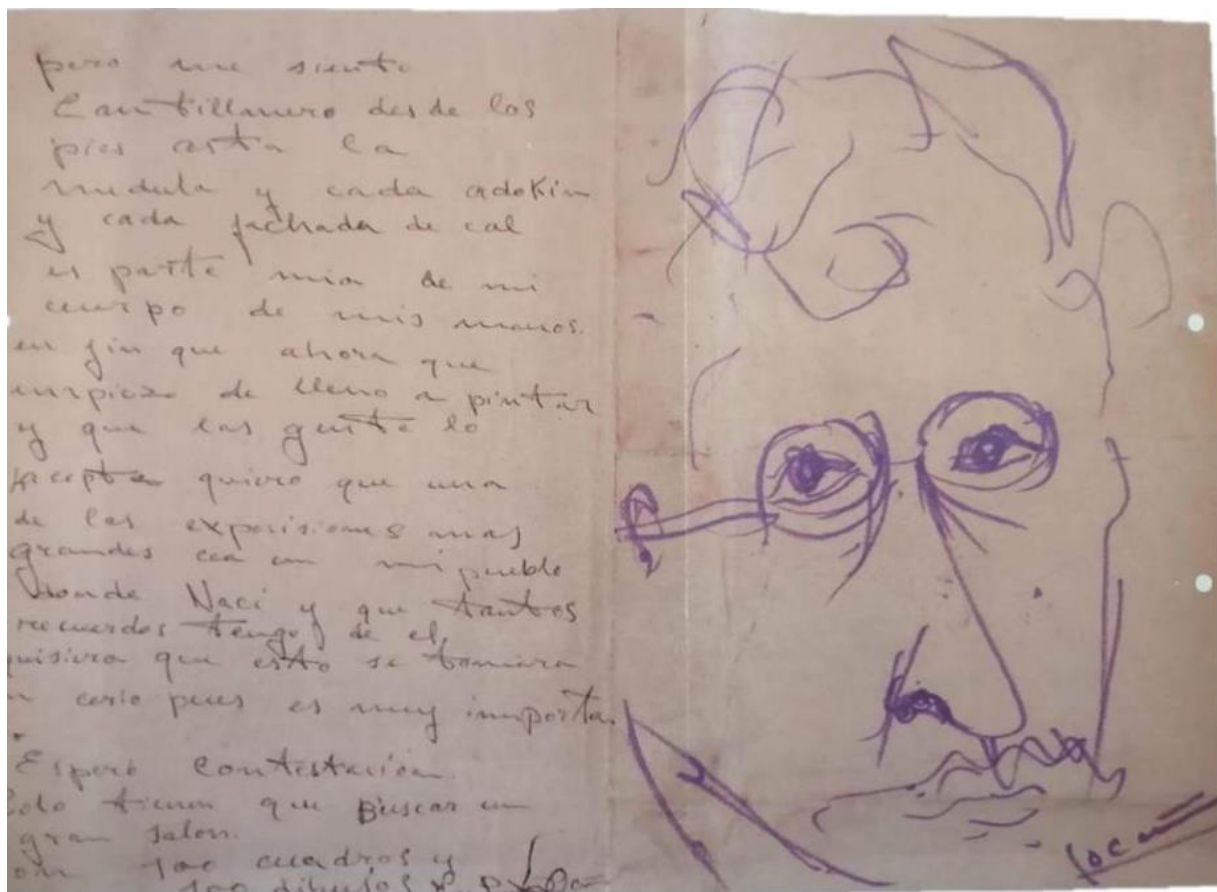 pero me siento
Cantillanero desde los
pies asta la
medula y cada adokin
y cada fachada de cal
es parte mia de mi
cuerpo de mis manos.
en fin que ahora que
empiezo de lleno a pintar
y que las gente lo
acepta quiero que una
de las exposisiones mas
grandes cea en mi pueblo
donde Naci y que tantos
recuerdos tengo de el,
quisiera que esto se tomara
n cerio pues es muy importa.
Espero Contestacion
Solo tienen que Buscar un
gran salon.
son 100 cuadros y
100 dibujos
Ocaña